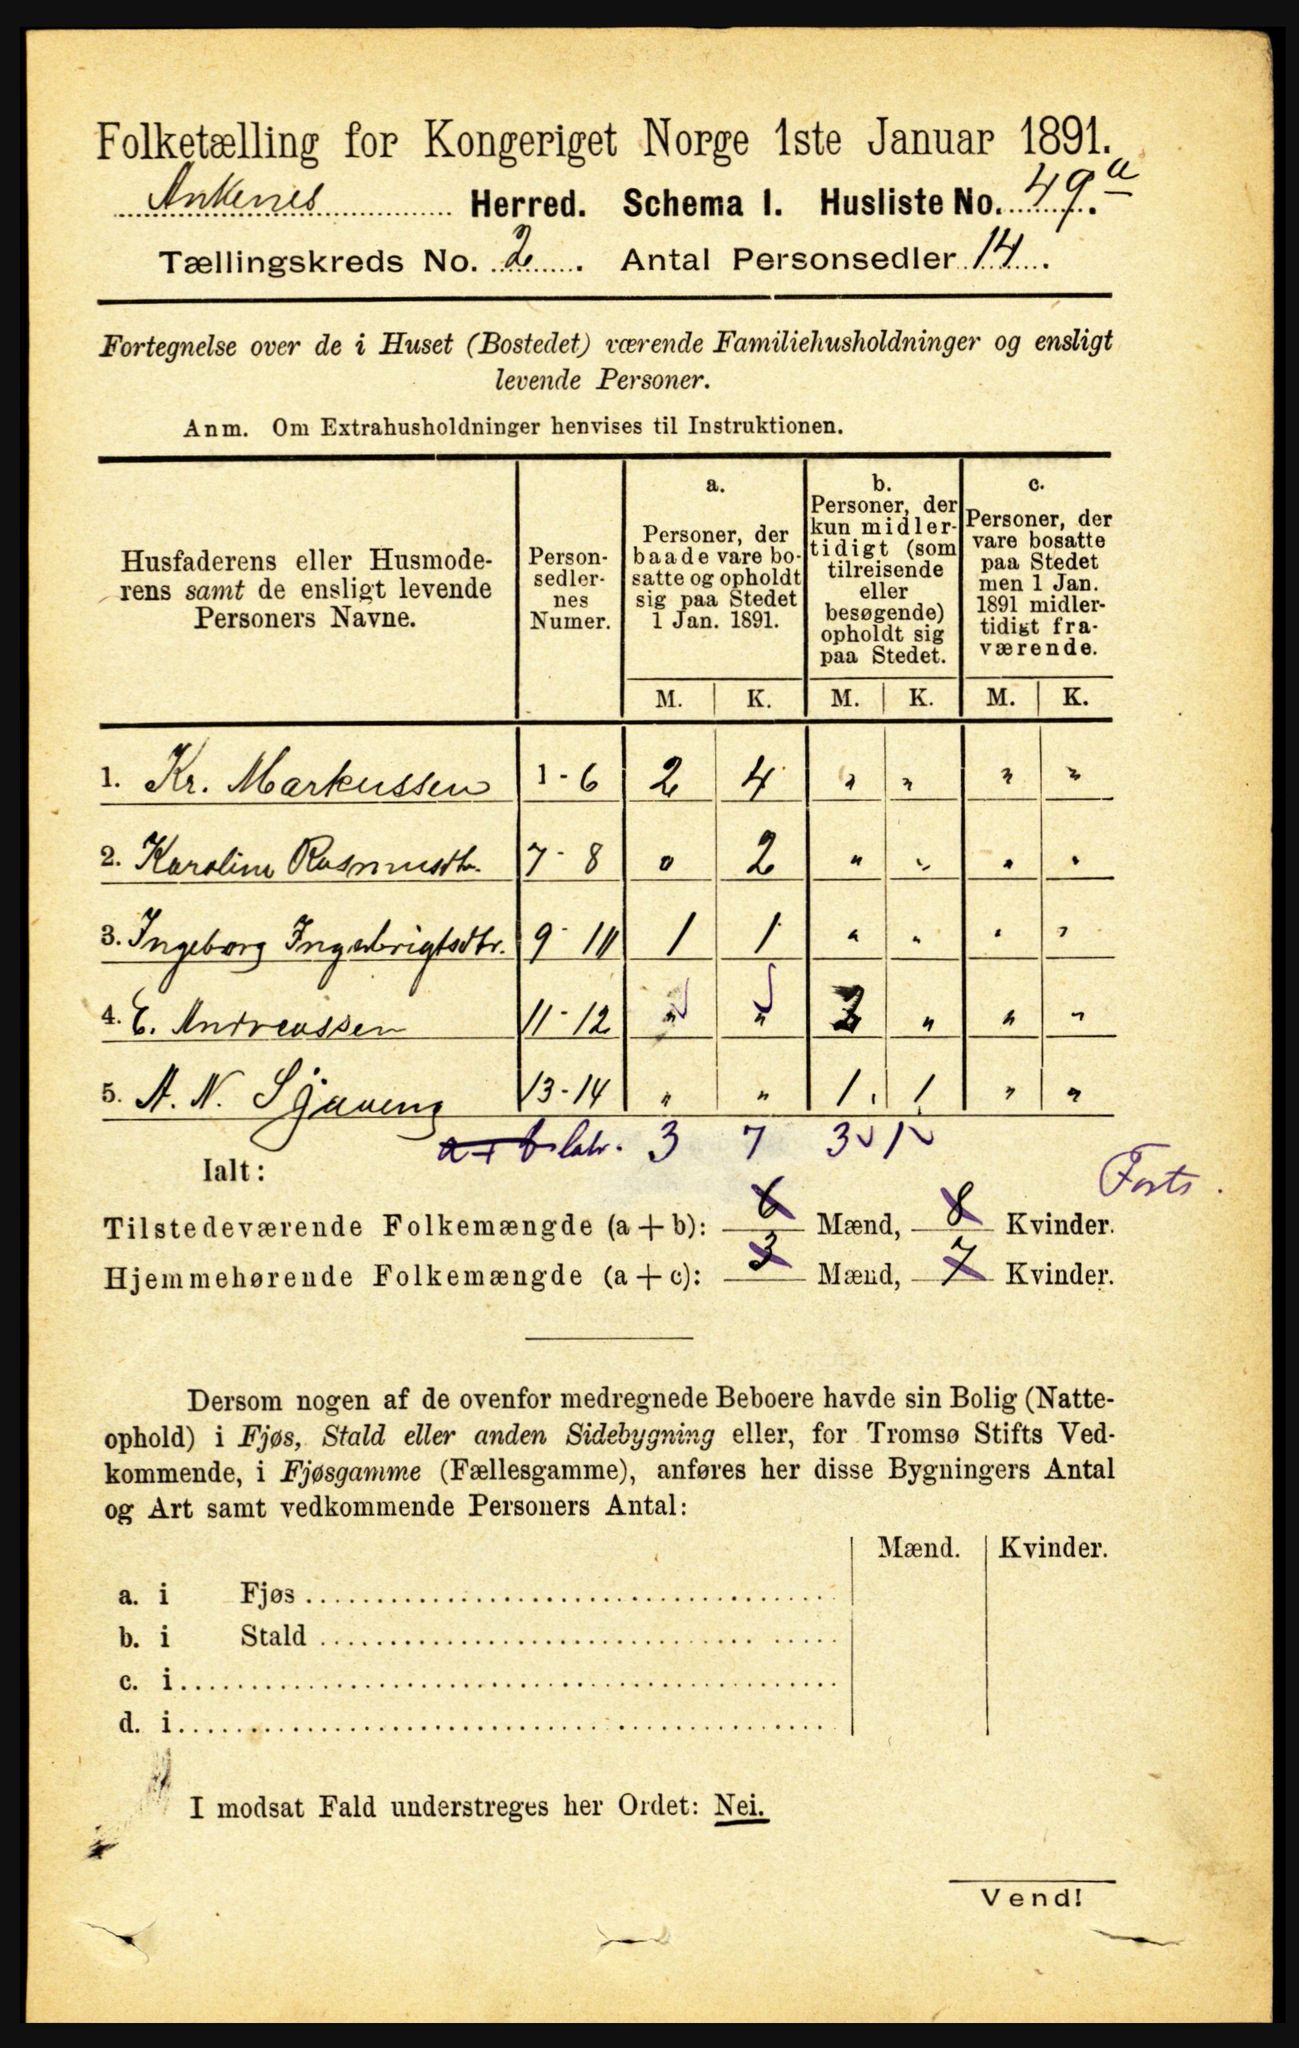 Folketælling for Kongeriget Norge 1ste Januar 1891.
Ankenes Herred. Schema I. Husliste No. 49.a
Tællingskreds No. 2. Antal Personsedler 14.
Fortegnelse over de i Huset (Bostedet) værende Familiehusholdninger og ensligt
levende Personer.
Anm. Om Extrahusholdninger henvises til Instruktionen.
Husfaderens eller Husmode-
rens samt de ensligt levende
Personers Navne.
Person-
sedler-
nes
Numer.
a.
Personer, der
baade vare bo-
satte og opholdt
sig paa Stedet
1 Jan. 1891.
b.
Personer, der
kun midler-
tidigt (som
tilreisende
eller
besøgende)
opholdt sig
paa Stedet.
c.
Personer, der
vare bosatte
paa Stedet
men 1 Jan.
1891 midler-
tidigt fra-
værende.
M. K. M. K. M. K.
1. Kr. Markussen 1-6 2 4 " " " "
2. Karoline Rasmusdtr. 7-8 0 2 " " " "
3. Ingeborg Ingebrigtsdtr. 9-10 1 1 " " " "
4. E. Andreassen 11-12 " " 2 " " "
5. A. N. 13-14 " " 1. 1 " "
a + b 3 7 3 1
Ialt:
Forts.
Tilstedeværende Folkemængde (a + b): 6 Mænd, 8 Kvinder.
Hjemmehørende Folkemængde (a + c): 3 Mænd, 7 Kvinder.
Dersom nogen af de ovenfor medregnede Beboere havde sin Bolig (Natte-
ophold) i Fjøs, Stald eller anden Sidebygning eller, for Tromsø Stifts Ved-
kommende, i Fjøsgamme (Fællesgamme), anføres her disse Bygningers Antal
og Art samt vedkommende Personers Antal:
Mænd. Kvinder.
a. i Fjøs
b. i Stald
c. i
d. i
I modsat Fald understreges her Ordet: Nei.
Vend!